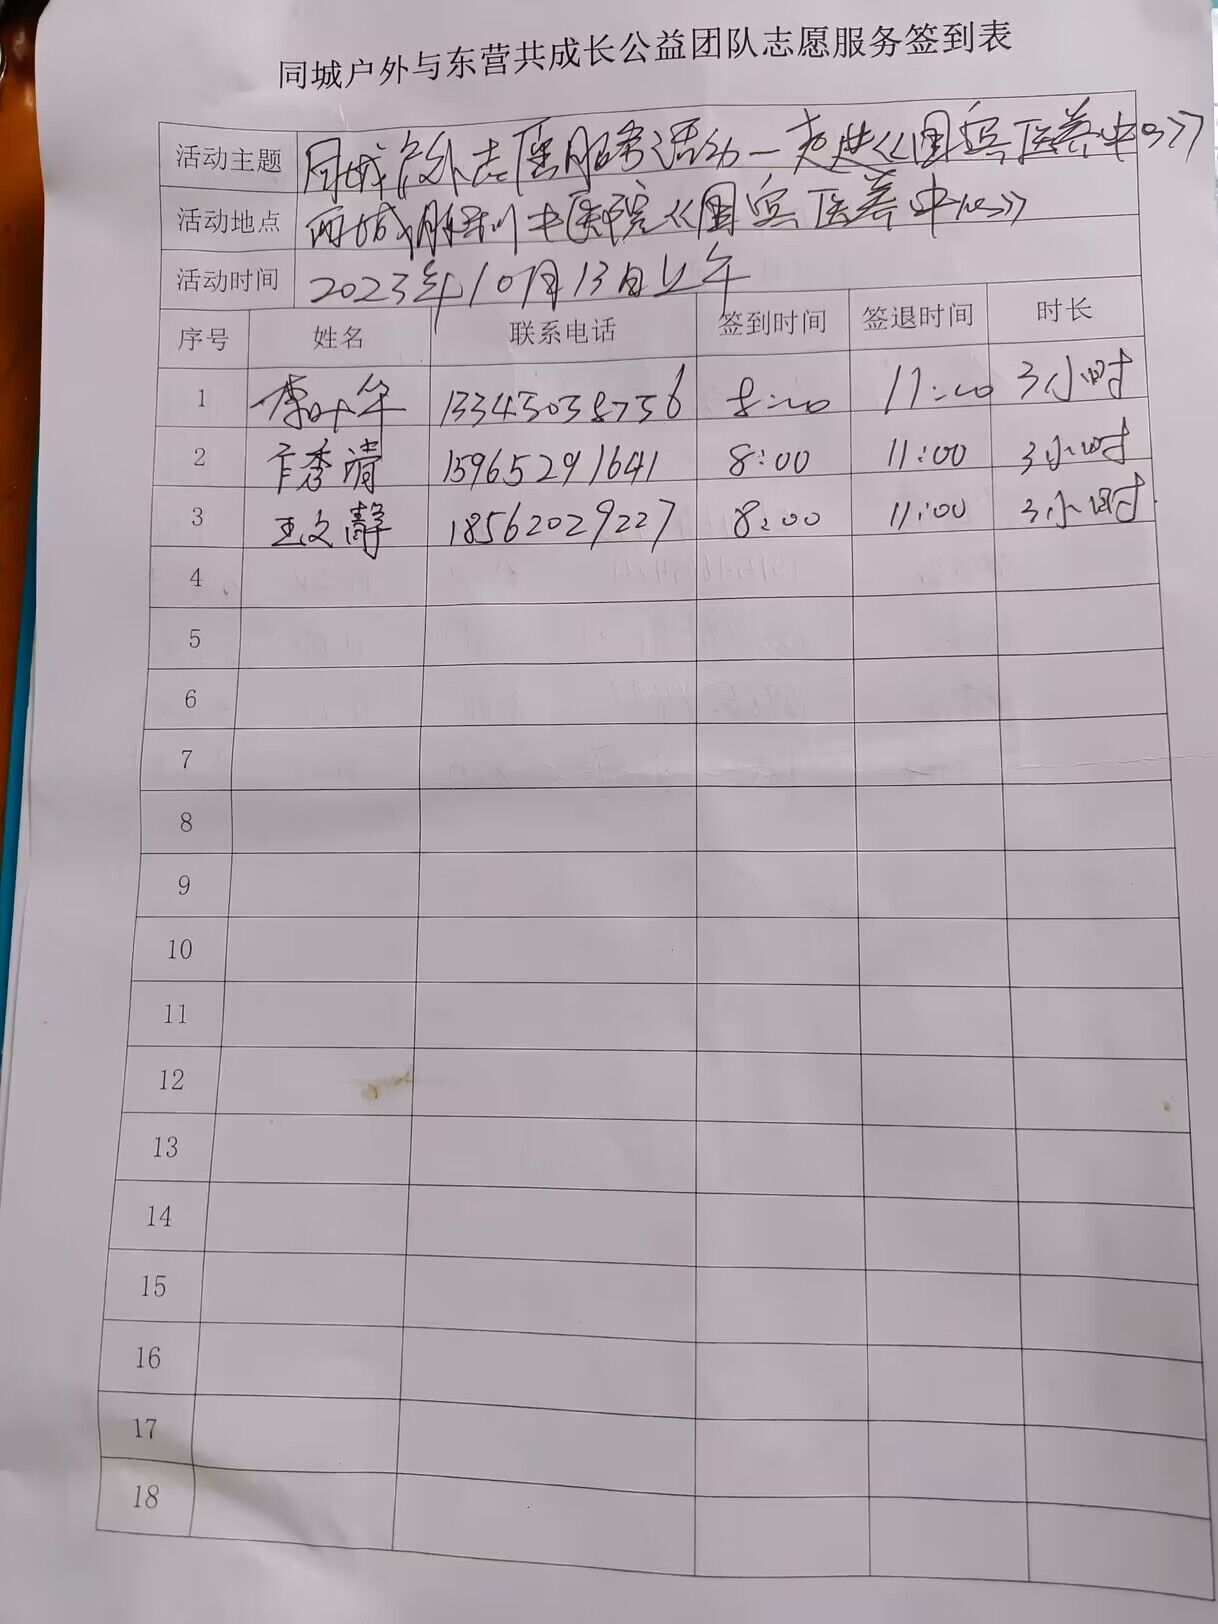 同城户外与东营共成长公益团队志愿服务签到表
活动主题 同城户外志愿服务活动—走进《国宾医养中心》
活动地点 西城胜利中医院《国宾医养中心》
活动时间 2023年10月13日上午
序号 姓名 联系电话 签到时间 签退时间 时长
1 李叶华 13345038756 8:00 11:00 3小时
2 卞秀清 15965291641 8:00 11:00 3小时
3 王文静 18562029227 8:00 11:00 3小时
4
5
6
7
8
9
10
11
12
13
14
15
16
17
18